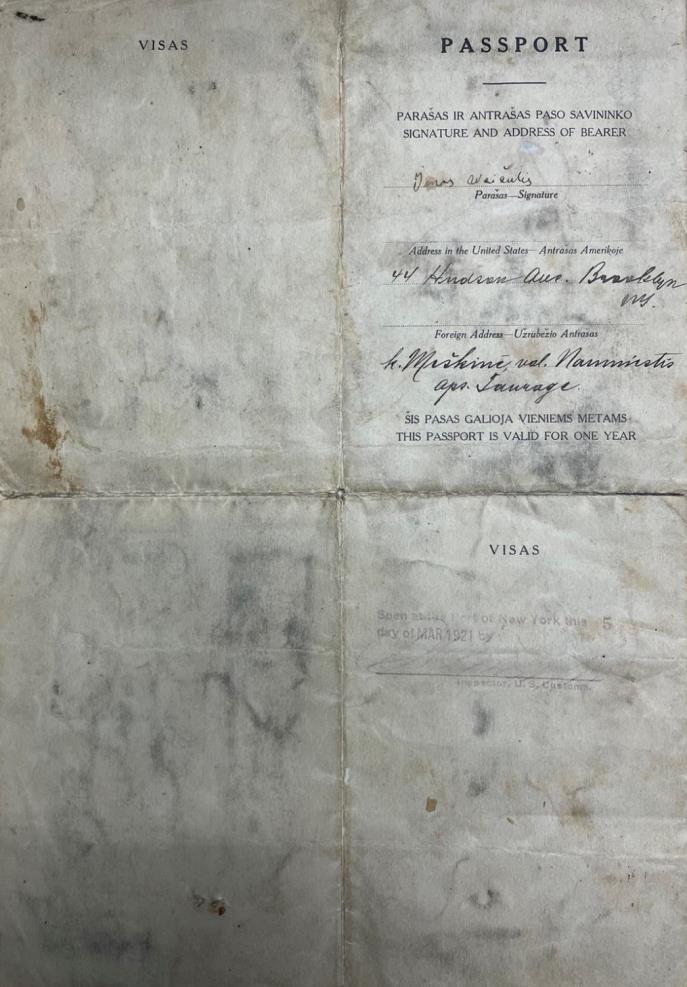 VISAS
PASSPORT
PARAŠAS IR ANTRAŠAS PASO SAVININKO
SIGNATURE AND ADDRESS OF BEARER
Parašas—Signature
Address in the United States—Antrašas Amerikoje
44 Hudson Ave. Brooklyn
NY.
Foreign Address—Užrubežio Antrašas
k. Meškinė, val. Naumiestis
aps. Taurage.
ŠIS PASAS GALIOJA VIENIEMS METAMS
THIS PASSPORT IS VALID FOR ONE YEAR
VISAS
Seen at the Port of New York this 5
day of MAR 1921 by
Inspector, U. S. Customs.